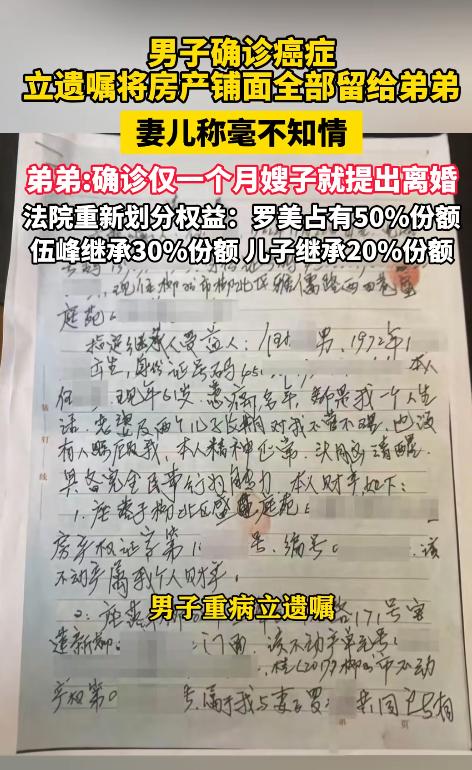 男子确诊癌症
立遗嘱将房产铺面全部留给弟弟
妻儿称毫不知情
弟弟:确诊仅一个月嫂子就提出离婚
法院重新划分权益：罗美占有50%份额
伍峰继承30%份额 儿子继承20%份额
庭苑
指定继承人受益人：伍 男、1972年1
生，身份证号码45 本人
伍 现年61岁，患病多年，都是我一个人生
活，老婆及两个儿子长期对我不管不顾，也没
有人照顾我，本人精神正常，头脑清醒
具备完全民事行为能力，本人财产如下：
1. 座落于柳北区 庭苑
房产权证字第1 号、编号 该
不动产属我个人财产。
男子重病立遗嘱
2. 座落 路171号
门面，该不动产单元号
桂(2017)柳州市不动
产权第0 号，属于我与妻子罗 共同
第 页
装订线